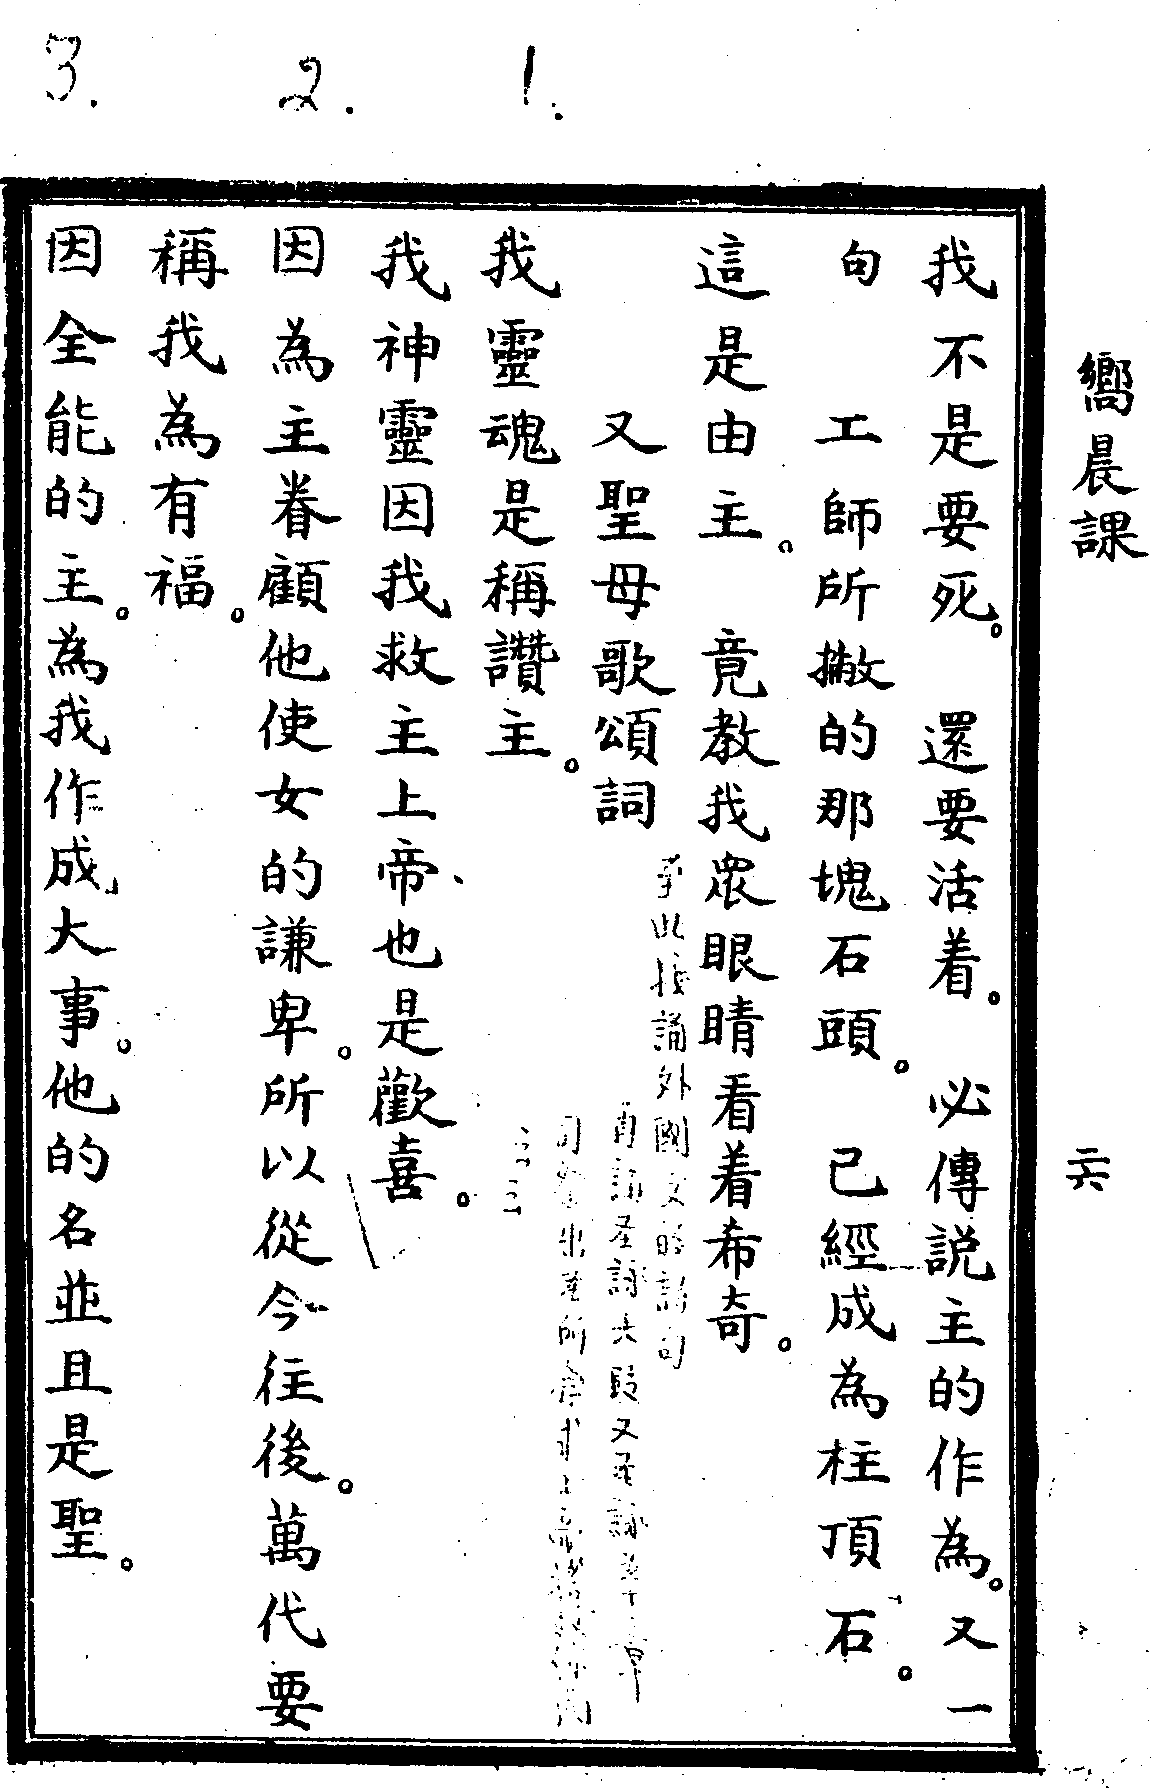 1.
2.
3.
嚮晨課
二六
我不是要死。還要活着。必傳説主的作為。又一
句　工師所撇的那塊石頭。已經成為柱頂石。
這是由主。竟教我眾眼睛看着希奇。
又聖母歌頌詞
至此接誦外國文的詩句
我靈魂是稱讚主。
我神靈因我救主上帝、也是歡喜。
因為主眷顧他使女的謙卑。所以從今往後。萬代要
稱我為有福。
因全能的主。為我作成大事。他的名並且是聖。